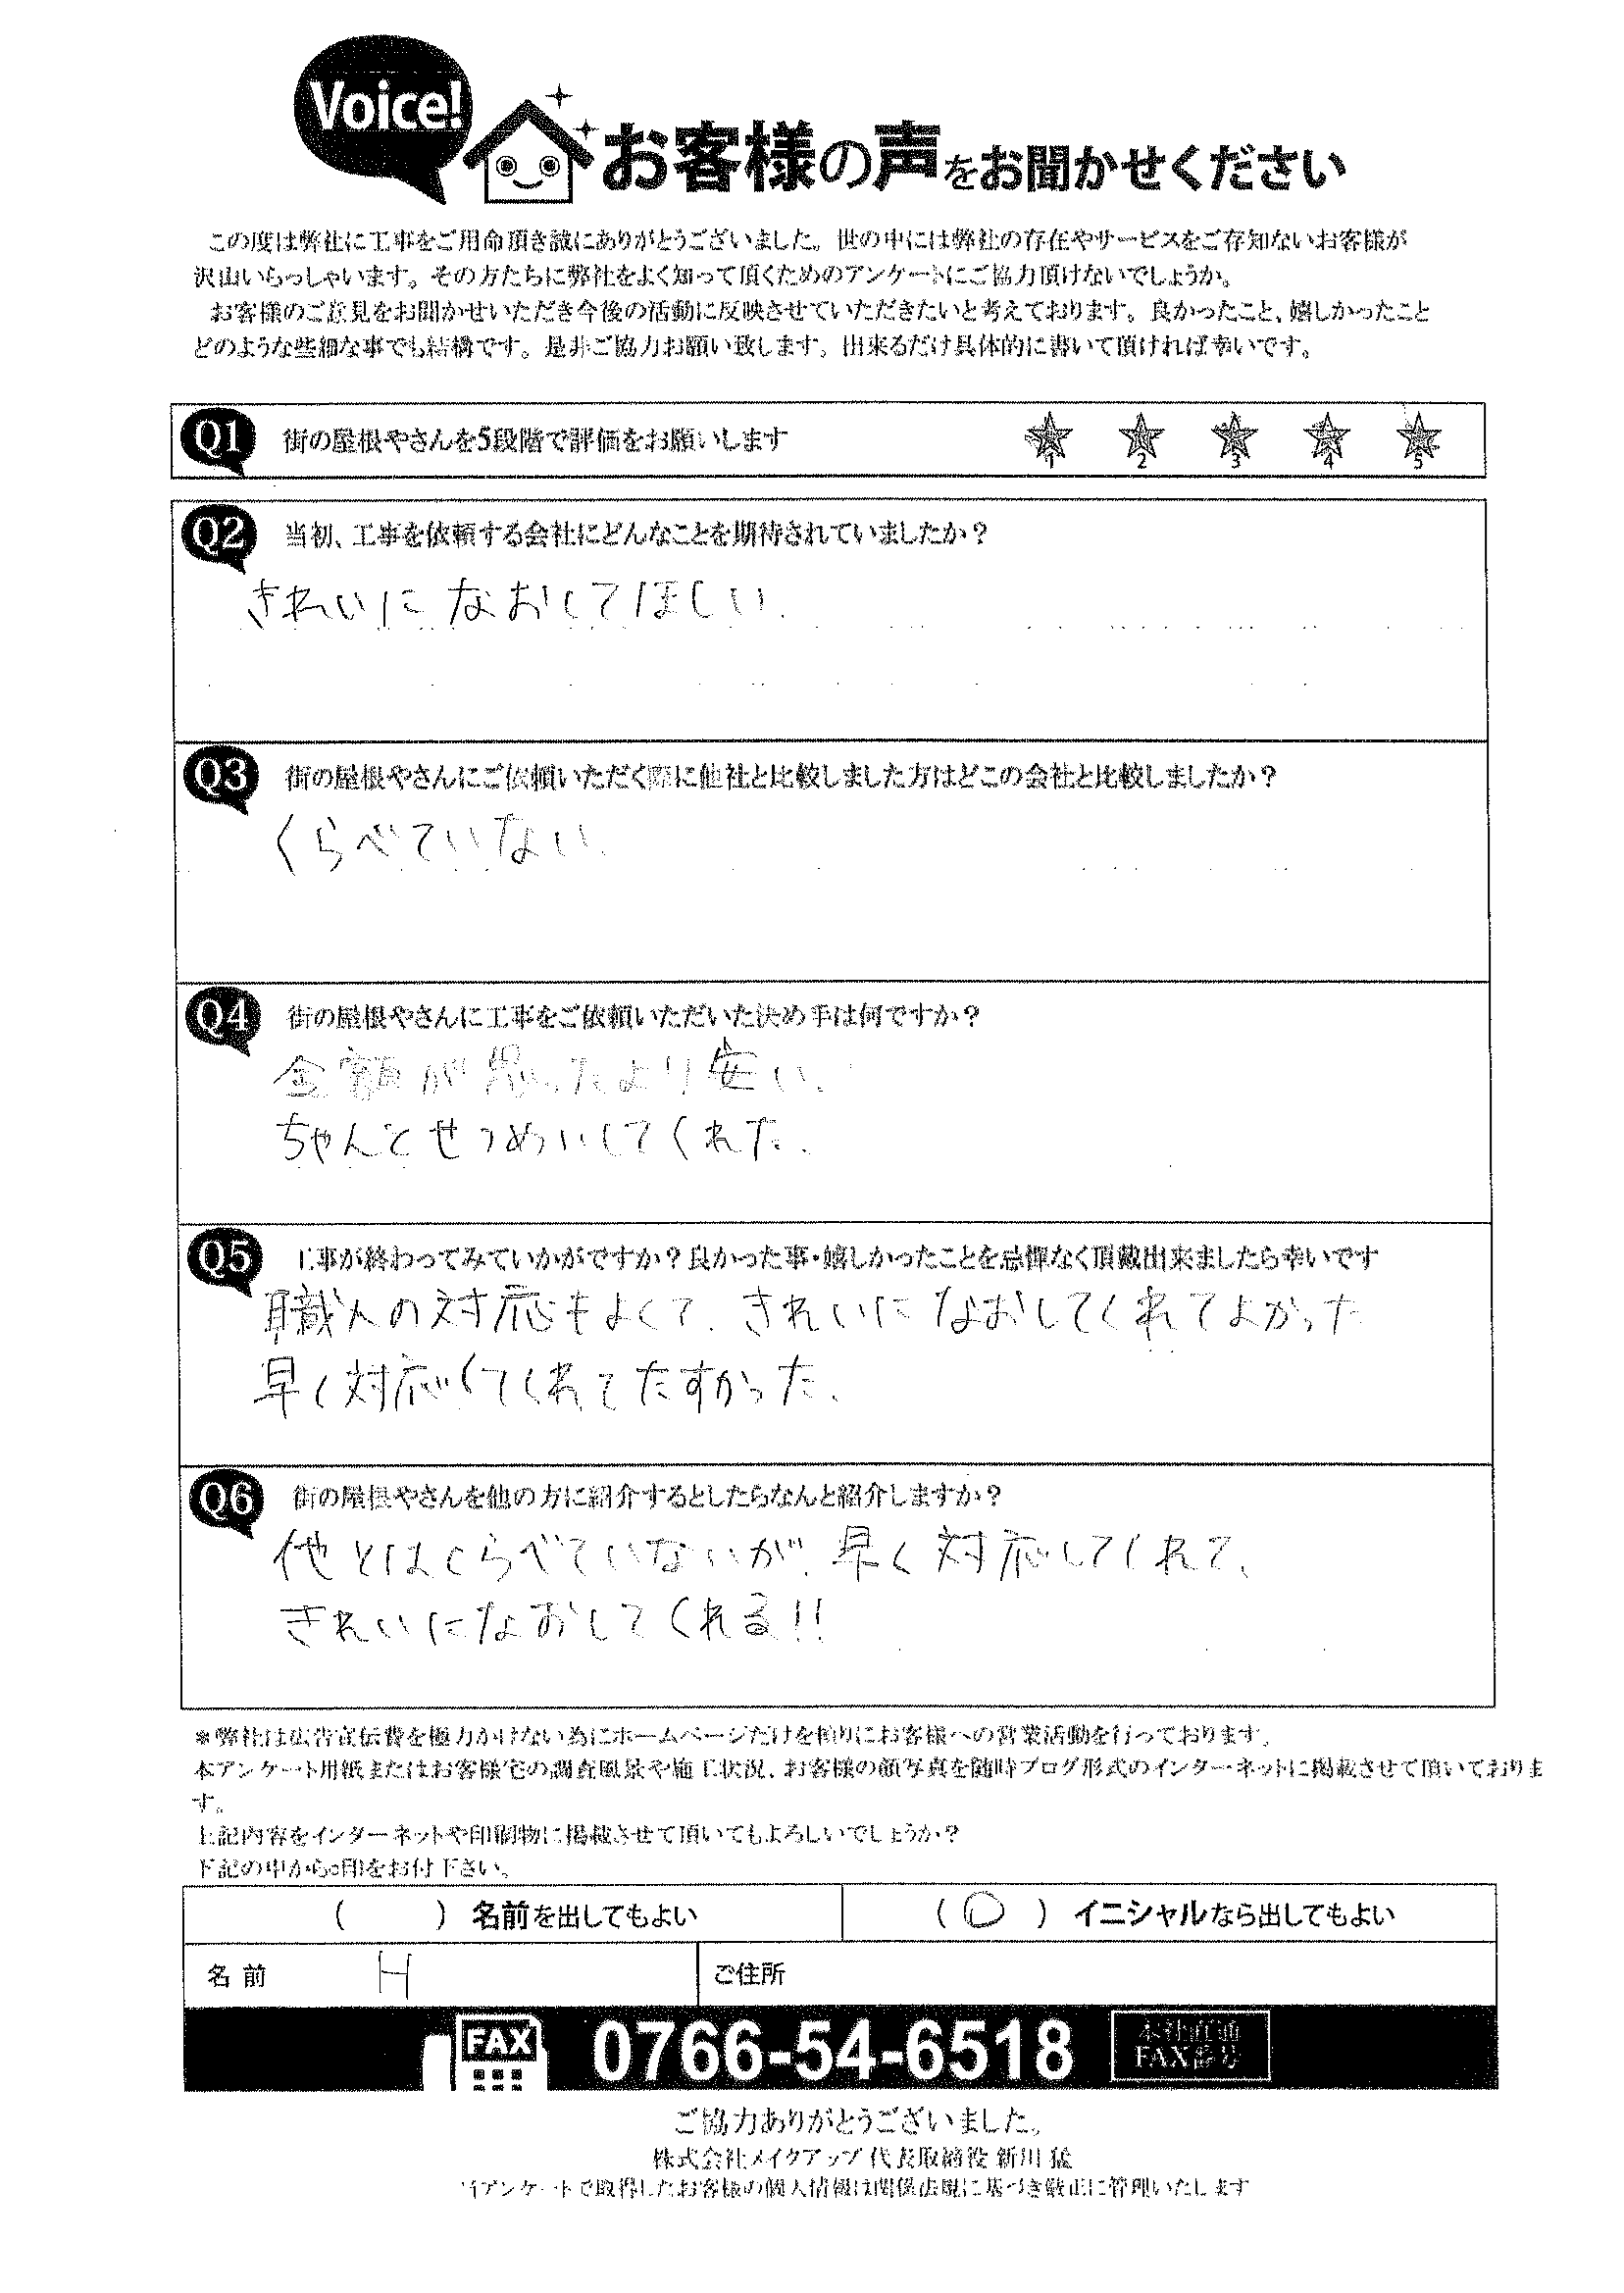 Voice!
お客様の声をお聞かせください
この度は弊社に工事をご用命頂き誠にありがとうございました。世の中には弊社の存在やサービスをご存知ないお客様が
沢山いらっしゃいます。その方たちに弊社をよく知って頂くためのアンケートにご協力頂けないでしょうか。
お客様のご意見をお聞かせいただき今後の活動に反映させていただきたいと考えております。良かったこと、嬉しかったこと
どのような些細な事でも結構です。是非ご協力お願い致します。出来るだけ具体的に書いて頂ければ幸いです。
Q1 街の屋根やさんを5段階で評価をお願いします
1 2 3 4 5
Q2 当初、工事を依頼する会社にどんなことを期待されていましたか？
きれいになおしてほしい.
Q3 街の屋根やさんにご依頼いただく際に他社と比較しました方はどこの会社と比較しましたか？
くらべていない.
Q4 街の屋根やさんに工事をご依頼いただいた決め手は何ですか？
金額が思ったより安い.
ちゃんとせつめいしてくれた.
Q5 工事が終わってみていかがですか？良かった事・嬉しかったことを忌憚なく頂戴出来ましたら幸いです
職人の対応もよくて、きれいになおしてくれてよかった
早く対応してくれてたすかった.
Q6 街の屋根やさんを他の方に紹介するとしたらなんと紹介しますか？
他とはくらべていないが、早く対応してくれて、
きれいになおしてくれる!!
※弊社は広告宣伝費を極力かけない為にホームページだけを頼りにお客様への営業活動を行っております。
本アンケート用紙またはお客様宅の調査風景や施工状況、お客様の顔写真を随時ブログ形式のインターネットに掲載させて頂いておりま
す。
上記内容をインターネットや印刷物に掲載させて頂いてもよろしいでしょうか？
下記の中から○印をお付下さい。
( ) 名前を出してもよい
(○) イニシャルなら出してもよい
名前 H
ご住所
FAX 0766-54-6518 本社直通
FAX番号
ご協力ありがとうございました。
株式会社メイクアップ 代表取締役 新川 猛
当アンケートで取得したお客様の個人情報は関係法規に基づき厳正に管理いたします